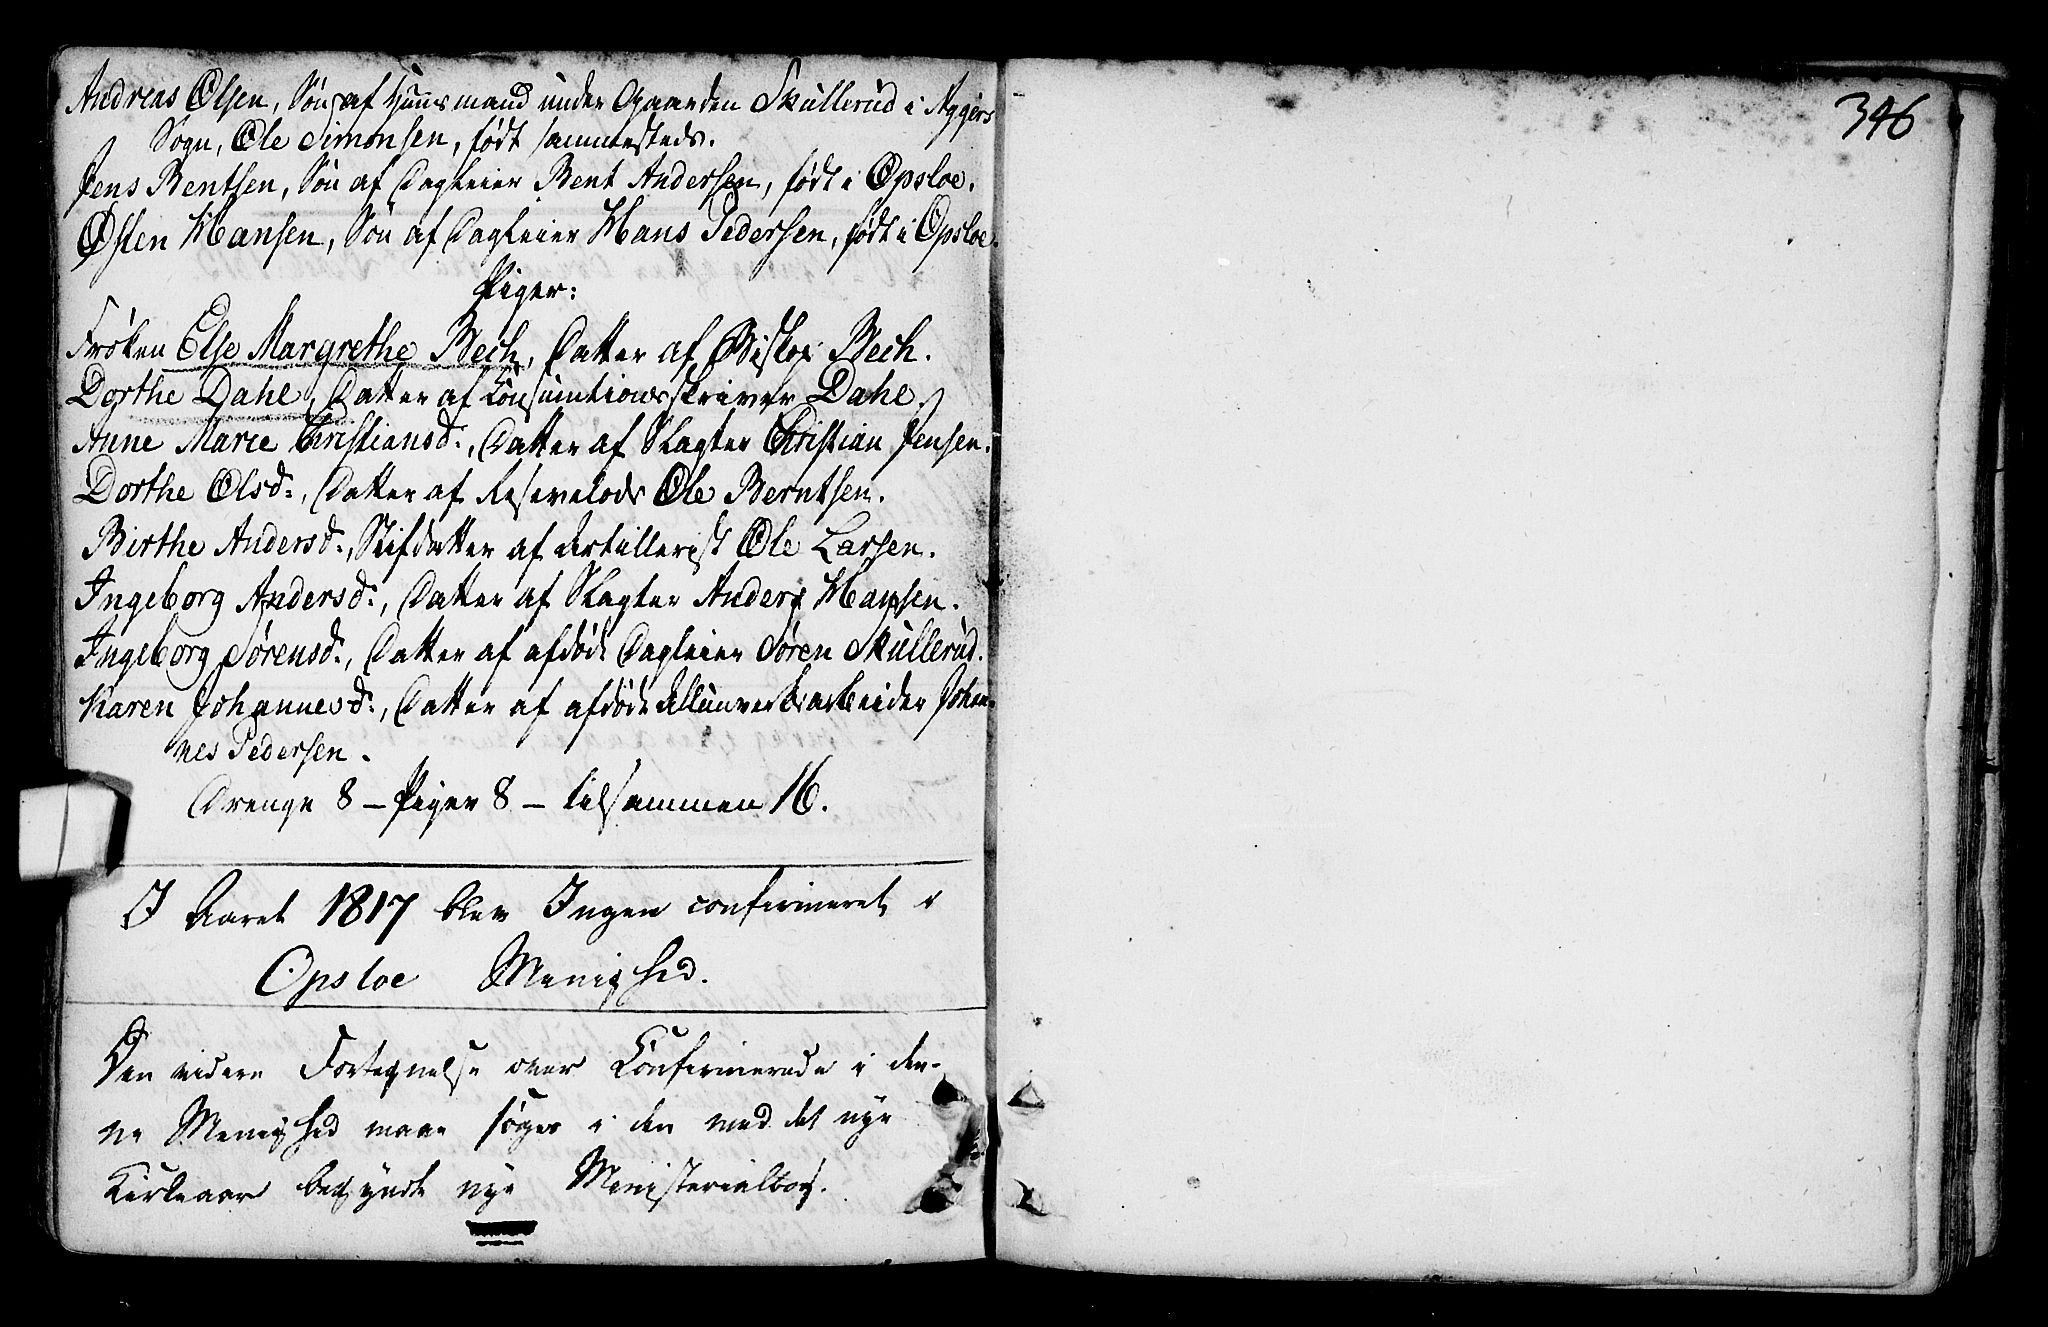 Andreas Olsen, Søn af Huusmand under Gaarden Skullerud i Aggers
Sogn, Ole Simonsen, født sammesteds.
Jens Bentsen, Søn af Dagleier Bent Andersen, født i Opsloe.
Østen Hansen, Søn af Dagleier Hans Pedersen, født i Opsloe.
Piger:
Frøken Else Margrethe Bech, Datter af Biskop Bech.
Dorthe Dahl, Datter af Consumtionsskriver Dahl.
Anne Marie Christiansd:, Datter af Slagter Christian Jensen.
Dorthe Olsd:, Datter af Ole Berntsen.
Birthe Andersd:, Stifdatter af Artillerist Ole Larsen.
Ingeborg Andersd:, Datter af Slagter Anders Hansen.
Ingeborg Sørensd:, Datter af afdøde Dagleier Søren Skullerud.
Karen Johannesd:, Datter af afdøde Allunverksarbeider Johan-
nes Pedersen.
Drenge 8 – Piger 8 – tilsammen 16.
I Aaret 1817 blev Ingen confirmeret i
Opsloe Menighed.
Den videre Fortegnelse over Confirmerede i den-
ne Menighed maae søges i den med det nye
Kirkeaar begyndte nye Ministerialbog.
346